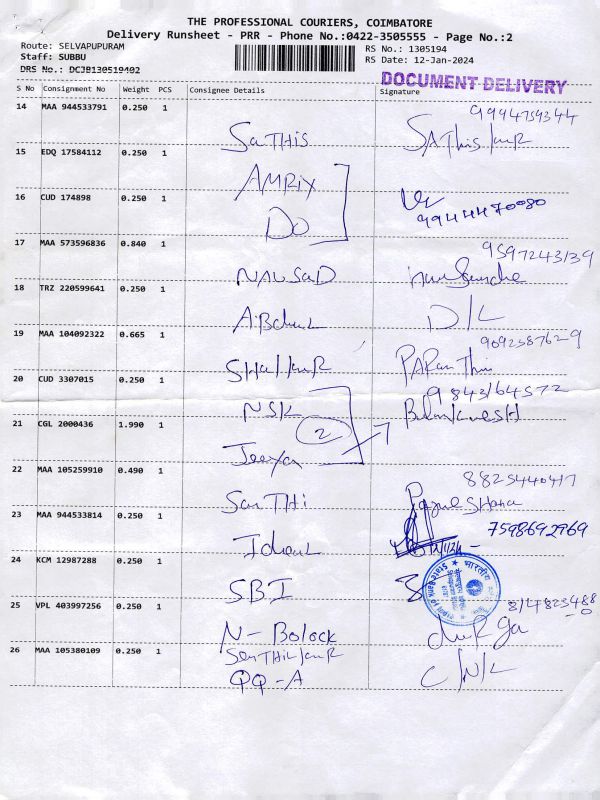 THE PROFESSIONAL COURIERS, COIMBATORE
Delivery Runsheet - PRR - Phone No.:0422-3505555 - Page No.:2
Route: SELVAPUPURAM
RS No.: 1305194
Staff: SUBBU
RS Date: 12-Jan-2024
DRS No.: DCJB130519402
DOCUMENT DELIVERY
S No Consignment No Weight PCS Consignee Details Signature
14 MAA 944533791 0.250 1
9994759344
SaTHIS SAThis
15 EDQ 17584112 0.250 1
AMRIX
16 CUD 174898 0.250 1
DO 9944470080
17 MAA 573596836 0.840 1
9597243139
NAUSaD
18 TRZ 220599641 0.250 1
D/L
19 MAA 104092322 0.665 1
9092387629
20 CUD 3307015 0.250 1
9843164572
NSK
21 CGL 2000436 1.990 1
2
Jeeya
22 MAA 105259910 0.490 1
SanTHi
23 MAA 944533814 0.250 1
7598692969
24 KCM 12987288 0.250 1
SBI
25 VPL 403997256 0.250 1
N-Bolock duRga
26 MAA 105380109 0.250 1
QQ-A